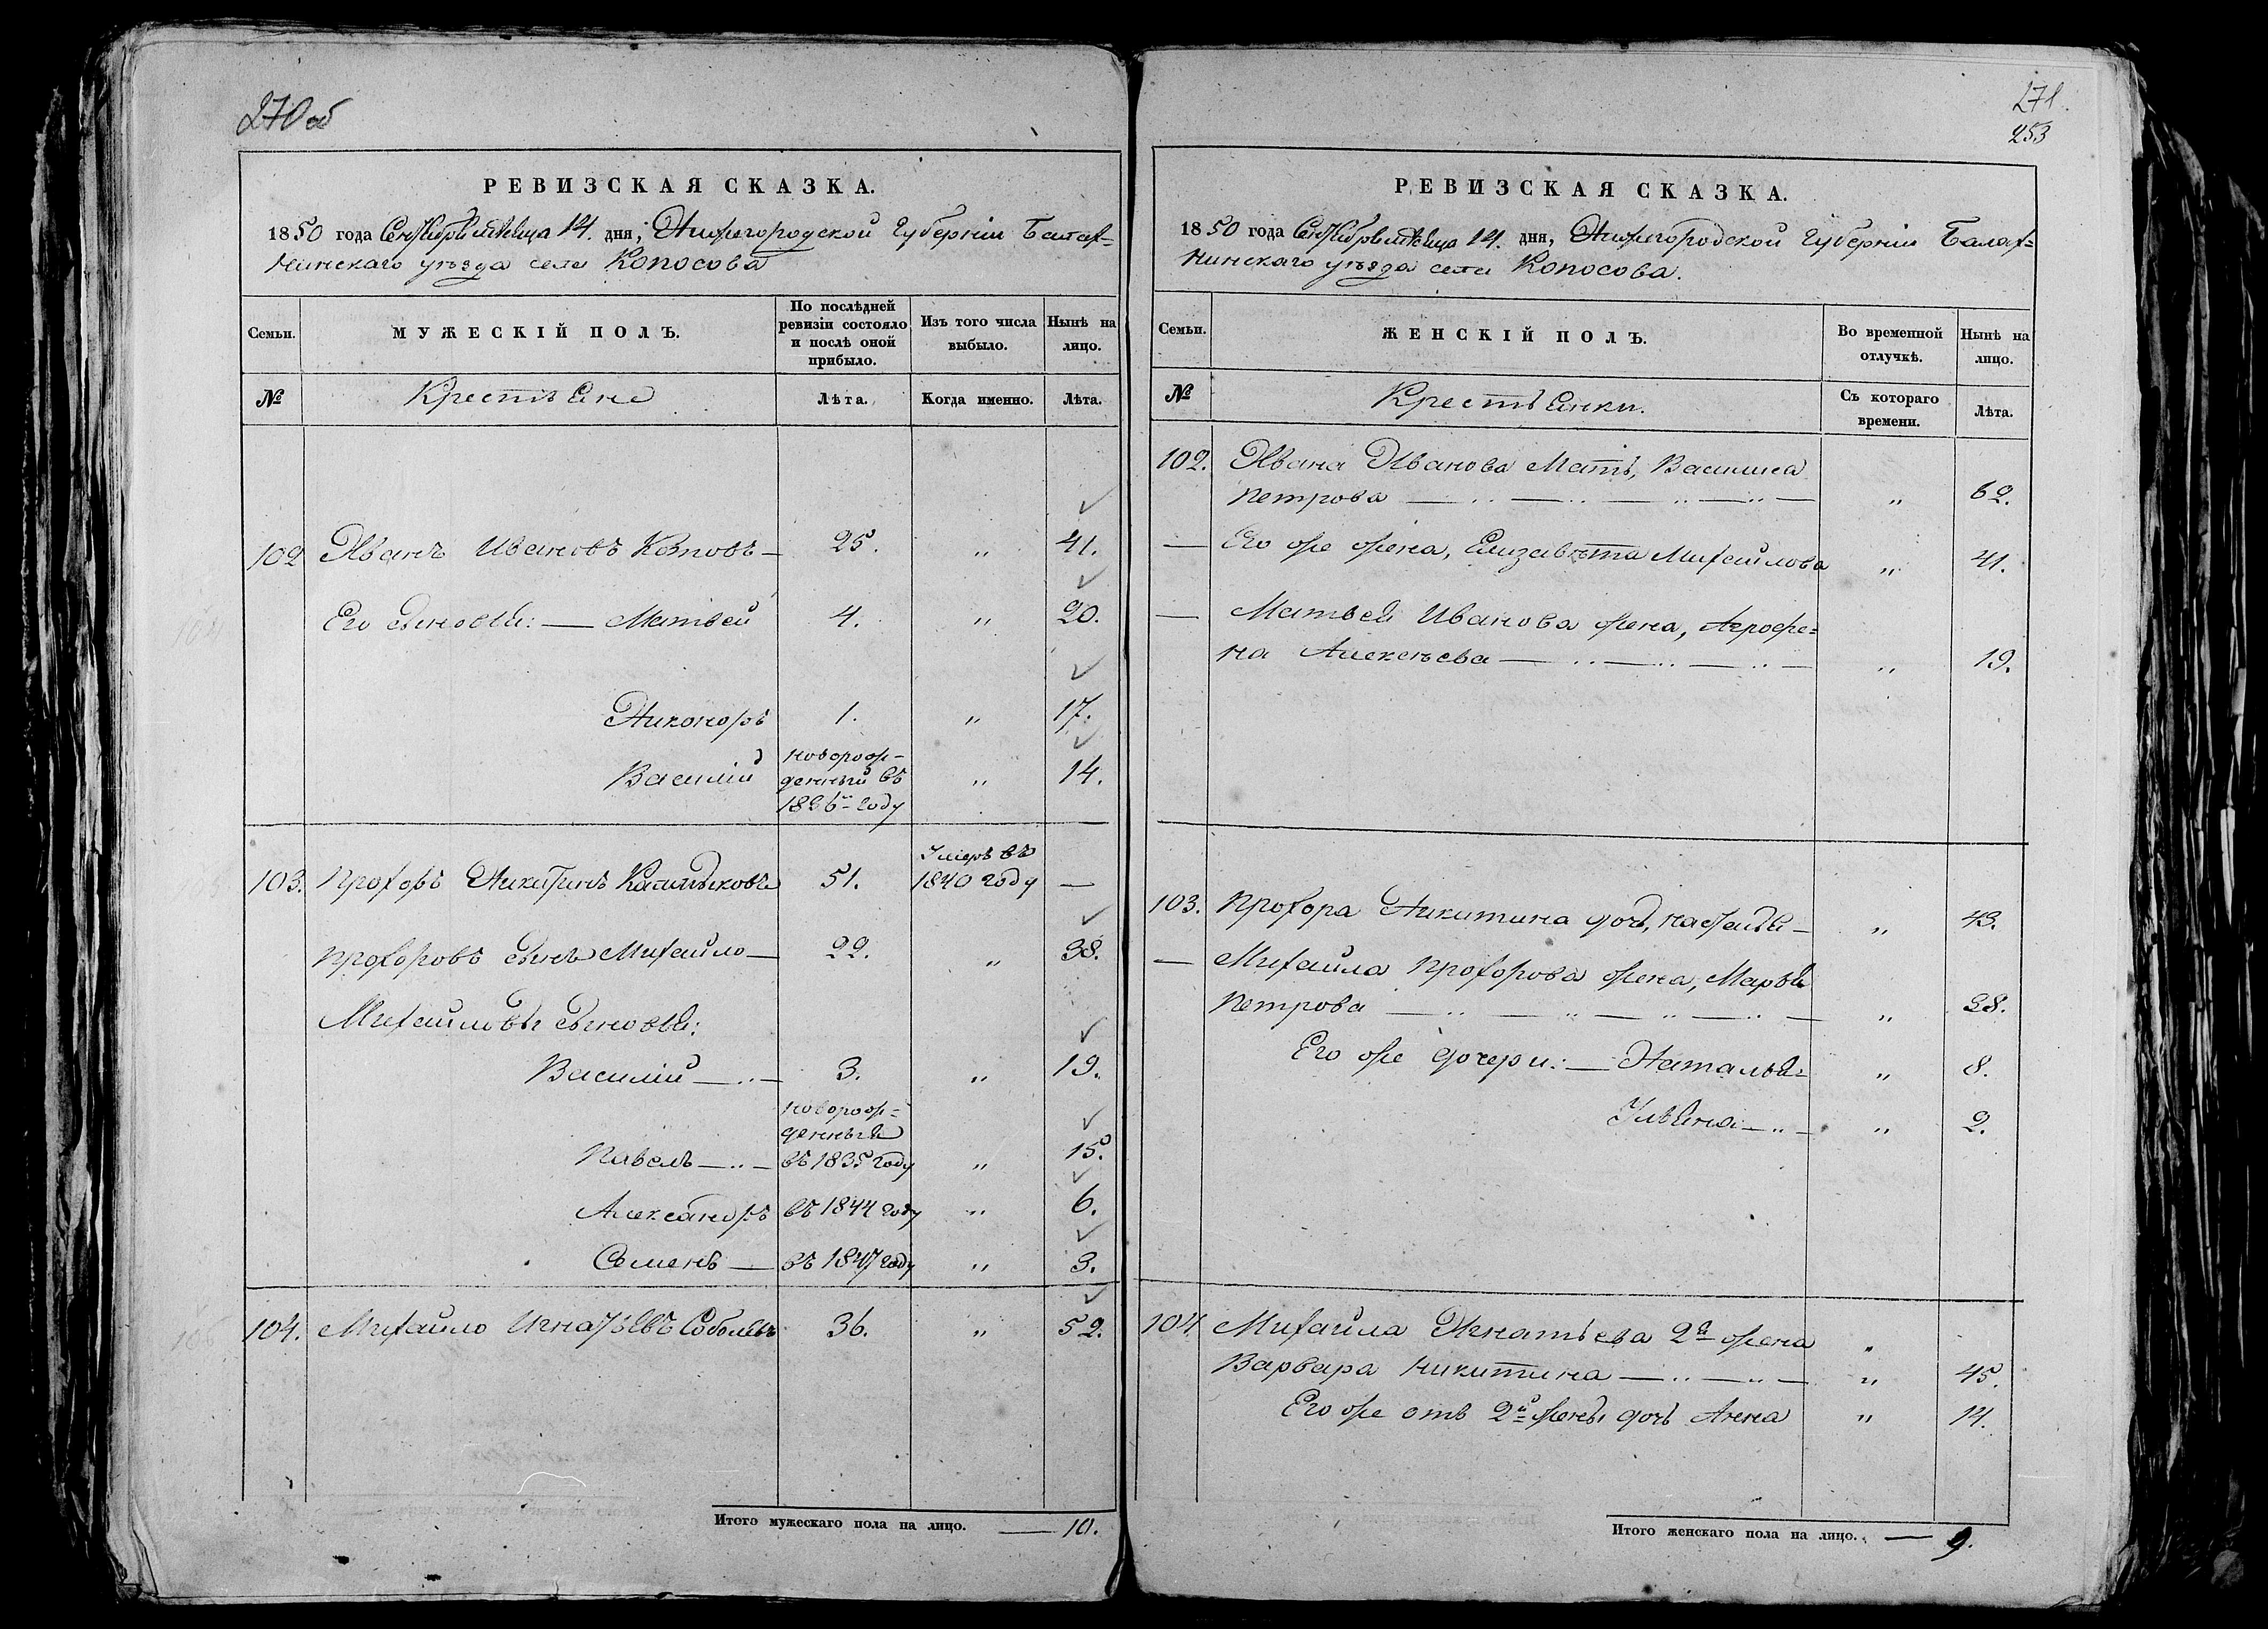 270 об
РЕВИЗСКАЯ СКАЗКА.
1850 года Сентября месяца 14. дня, Нижегородской Губернiи Балах=
нинскаго уѣзда села Копосова
Семьи.
МУЖЕСКІЙ ПОЛЪ.
По послѣдней
ревизіи состояло
и послѣ оной
прибыло.
Изъ того числа
выбыло.
Нынѣ на
лицо.
№
Крестьяне
Лѣта.
Когда именно.
Лѣта.
102 Иванъ Ивановъ — 25. „ 41.
Его сыновья: — Матвей 4. „ 20.
Никоноръ 1. „ 17.
Василій новорож-
денный въ „ 14.
1836м году
103. Прохоръ Никитинъ 51. Умеръ въ
1840 году —
Прохоровъ сынъ Михайло — 22. „ 38.
Михайловы сыновья:
Василій — „ — 3. „ 19.
новорож=
денныя
Павелъ — „ — въ 1835 году „ 15.
Александръ въ 1844 году „ 6.
Семенъ — въ 1847 году „ 3.
104. Михайло Игнатьевъ Соболевъ 36. „ 52.
Итого мужескаго пола на лицо. — 10.
271.
253
РЕВИЗСКАЯ СКАЗКА.
1850 года Сентября месяца 14. дня, Нижегородской Губернiи Балах=
нинскаго уѣзда села Копосова.
Семьи.
ЖЕНСКІЙ ПОЛЪ.
Во временной
отлучкѣ.
Нынѣ на
лицо.
№
Крестьянки.
Съ котораго
времени.
Лѣта.
102. Ивана Иванова Мать, Васлиса
Петрова — „ — „ — „ — „ — „ 62.
— Его же жена, Елизавѣта Михайлова „ 41.
— Матвея Иванова жена, Агрофе=
на Алексѣева — „ — „ — „ — „ 19.
103. Прохора Никитина дочь, Настасья — „ 43.
— Михайла Прохорова жена, Марья
Петрова — „ — „ — „ — „ — „ 38.
Его же дочери: — Наталья „ 8.
Ульяна — „ — „ 2.
104. Михайла Игнатьева 2я жена „
Варвара Никитина — „ — „ — „ 45.
Его же отъ 2й жены дочь Анна „ 14.
Итого женскаго пола на лицо. — 9.